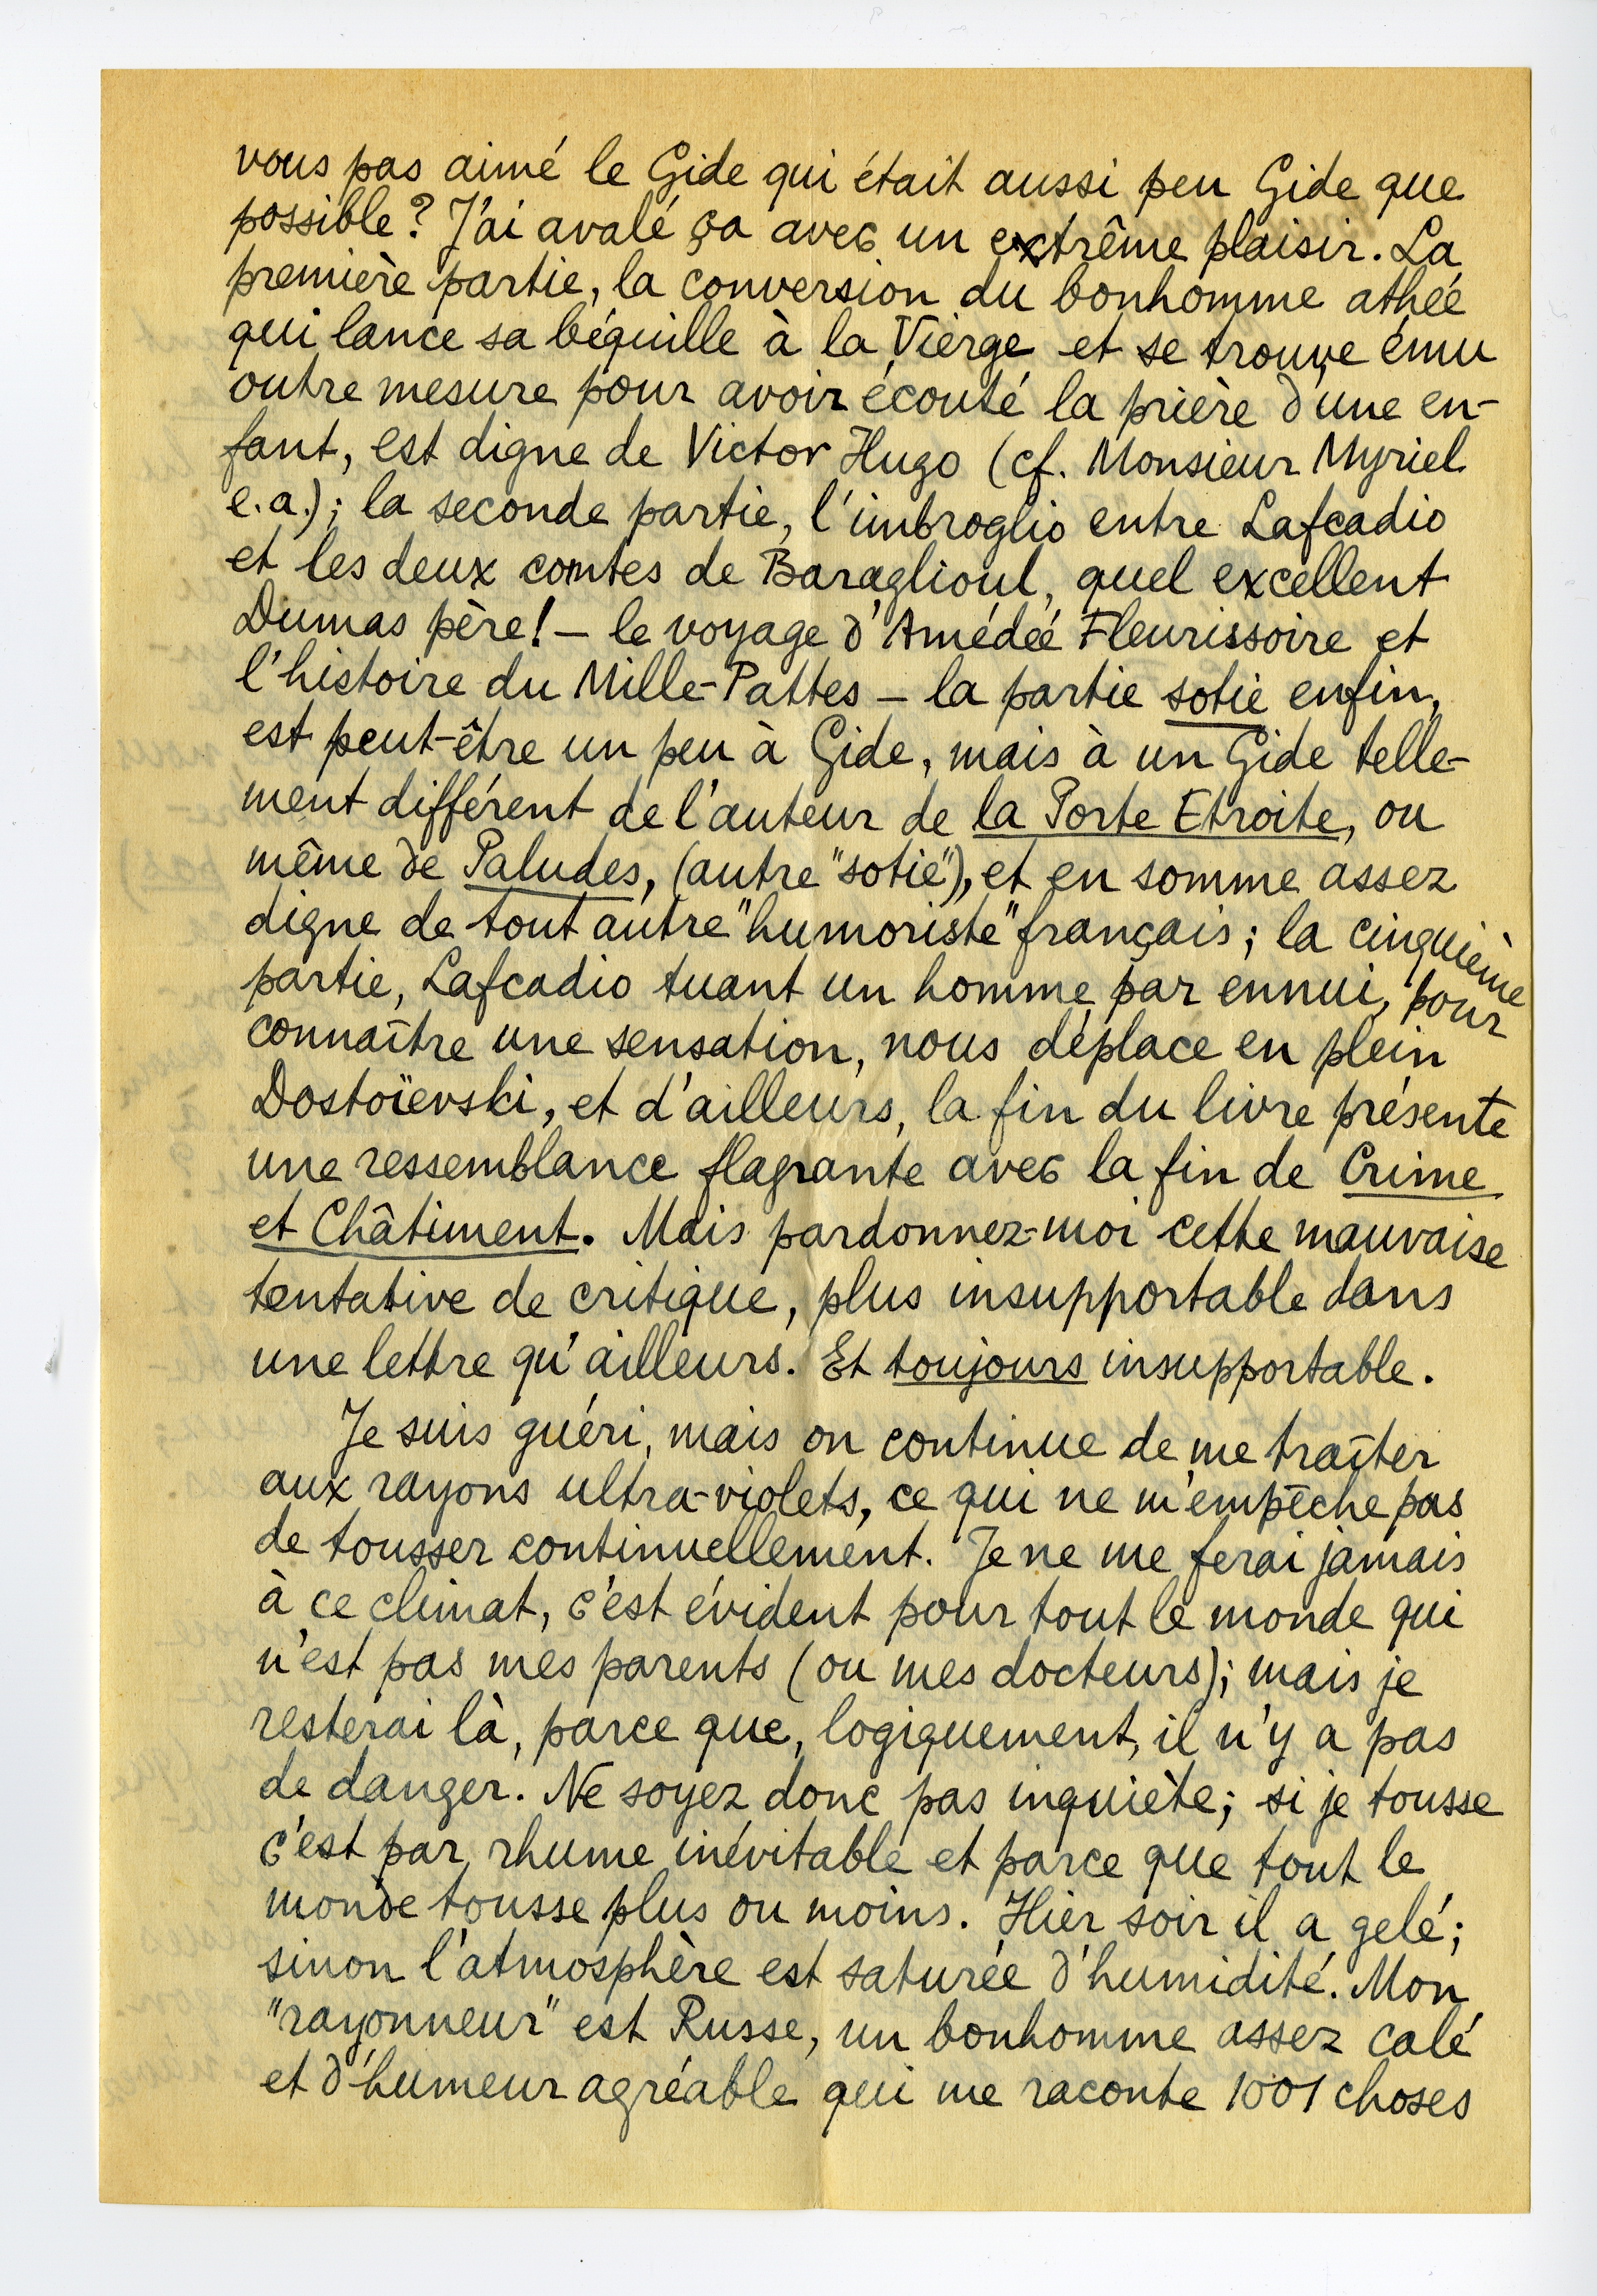 vous pas aimé le Gide qui était aussi peu Gide que
possible? J'ai avalé ça avec un extrême plaisir. La
première partie, la conversion du bonhomme athée
qui lance sa béquille à la Vierge et se trouve ému
outre mesure pour avoir écouté la prière d'une en-
fant, est digne de Victor Hugo (cf. Monsieur Myriel
e.a.); la seconde partie, l'imbroglio entre Lafcadio
et les deux comtes de Baraglioul, quel excellent
Dumas père! – le voyage d'Amédée Fleurissoire et
l'histoire du Mille-Pattes – la partie sotie enfin,
est peut-être un peu à Gide, mais à un Gide telle-
ment différent de l'auteur de la Porte Etroite, ou
même de Paludes, (autre "sotie"), et en somme assez
digne de tout autre "humoriste" français; la cinquième
partie, Lafcadio tuant un homme par ennui, pour
connaître une sensation, nous déplace en plein
Dostoïevski, et d'ailleurs, la fin du livre présente
une ressemblance flagrante avec la fin de Crime
et Châtiment. Mais pardonnez-moi cette mauvaise
tentative de critique, plus insupportable dans
une lettre qu'ailleurs. Et toujours insupportable.
Je suis guéri, mais on continue de me traîter
aux rayons ultra-violets, ce qui ne m'empêche pas
de tousser continuellement. Je ne me ferai jamais
à ce climat, c'est évident pour tout le monde qui
n'est pas mes parents (ou mes docteurs); mais je
resterai là, parce que, logiquement, il n'y a pas
de danger. Ne soyez donc pas inquiète; si je tousse
c'est par rhume inévitable et parce que tout le
monde tousse plus ou moins. Hier soir il a gelé;
sinon l'atmosphère est saturée d'humidité. Mon
"rayonneur" est Russe, un bonhomme assez calé
et d'humeur agréable qui me raconte 1001 choses